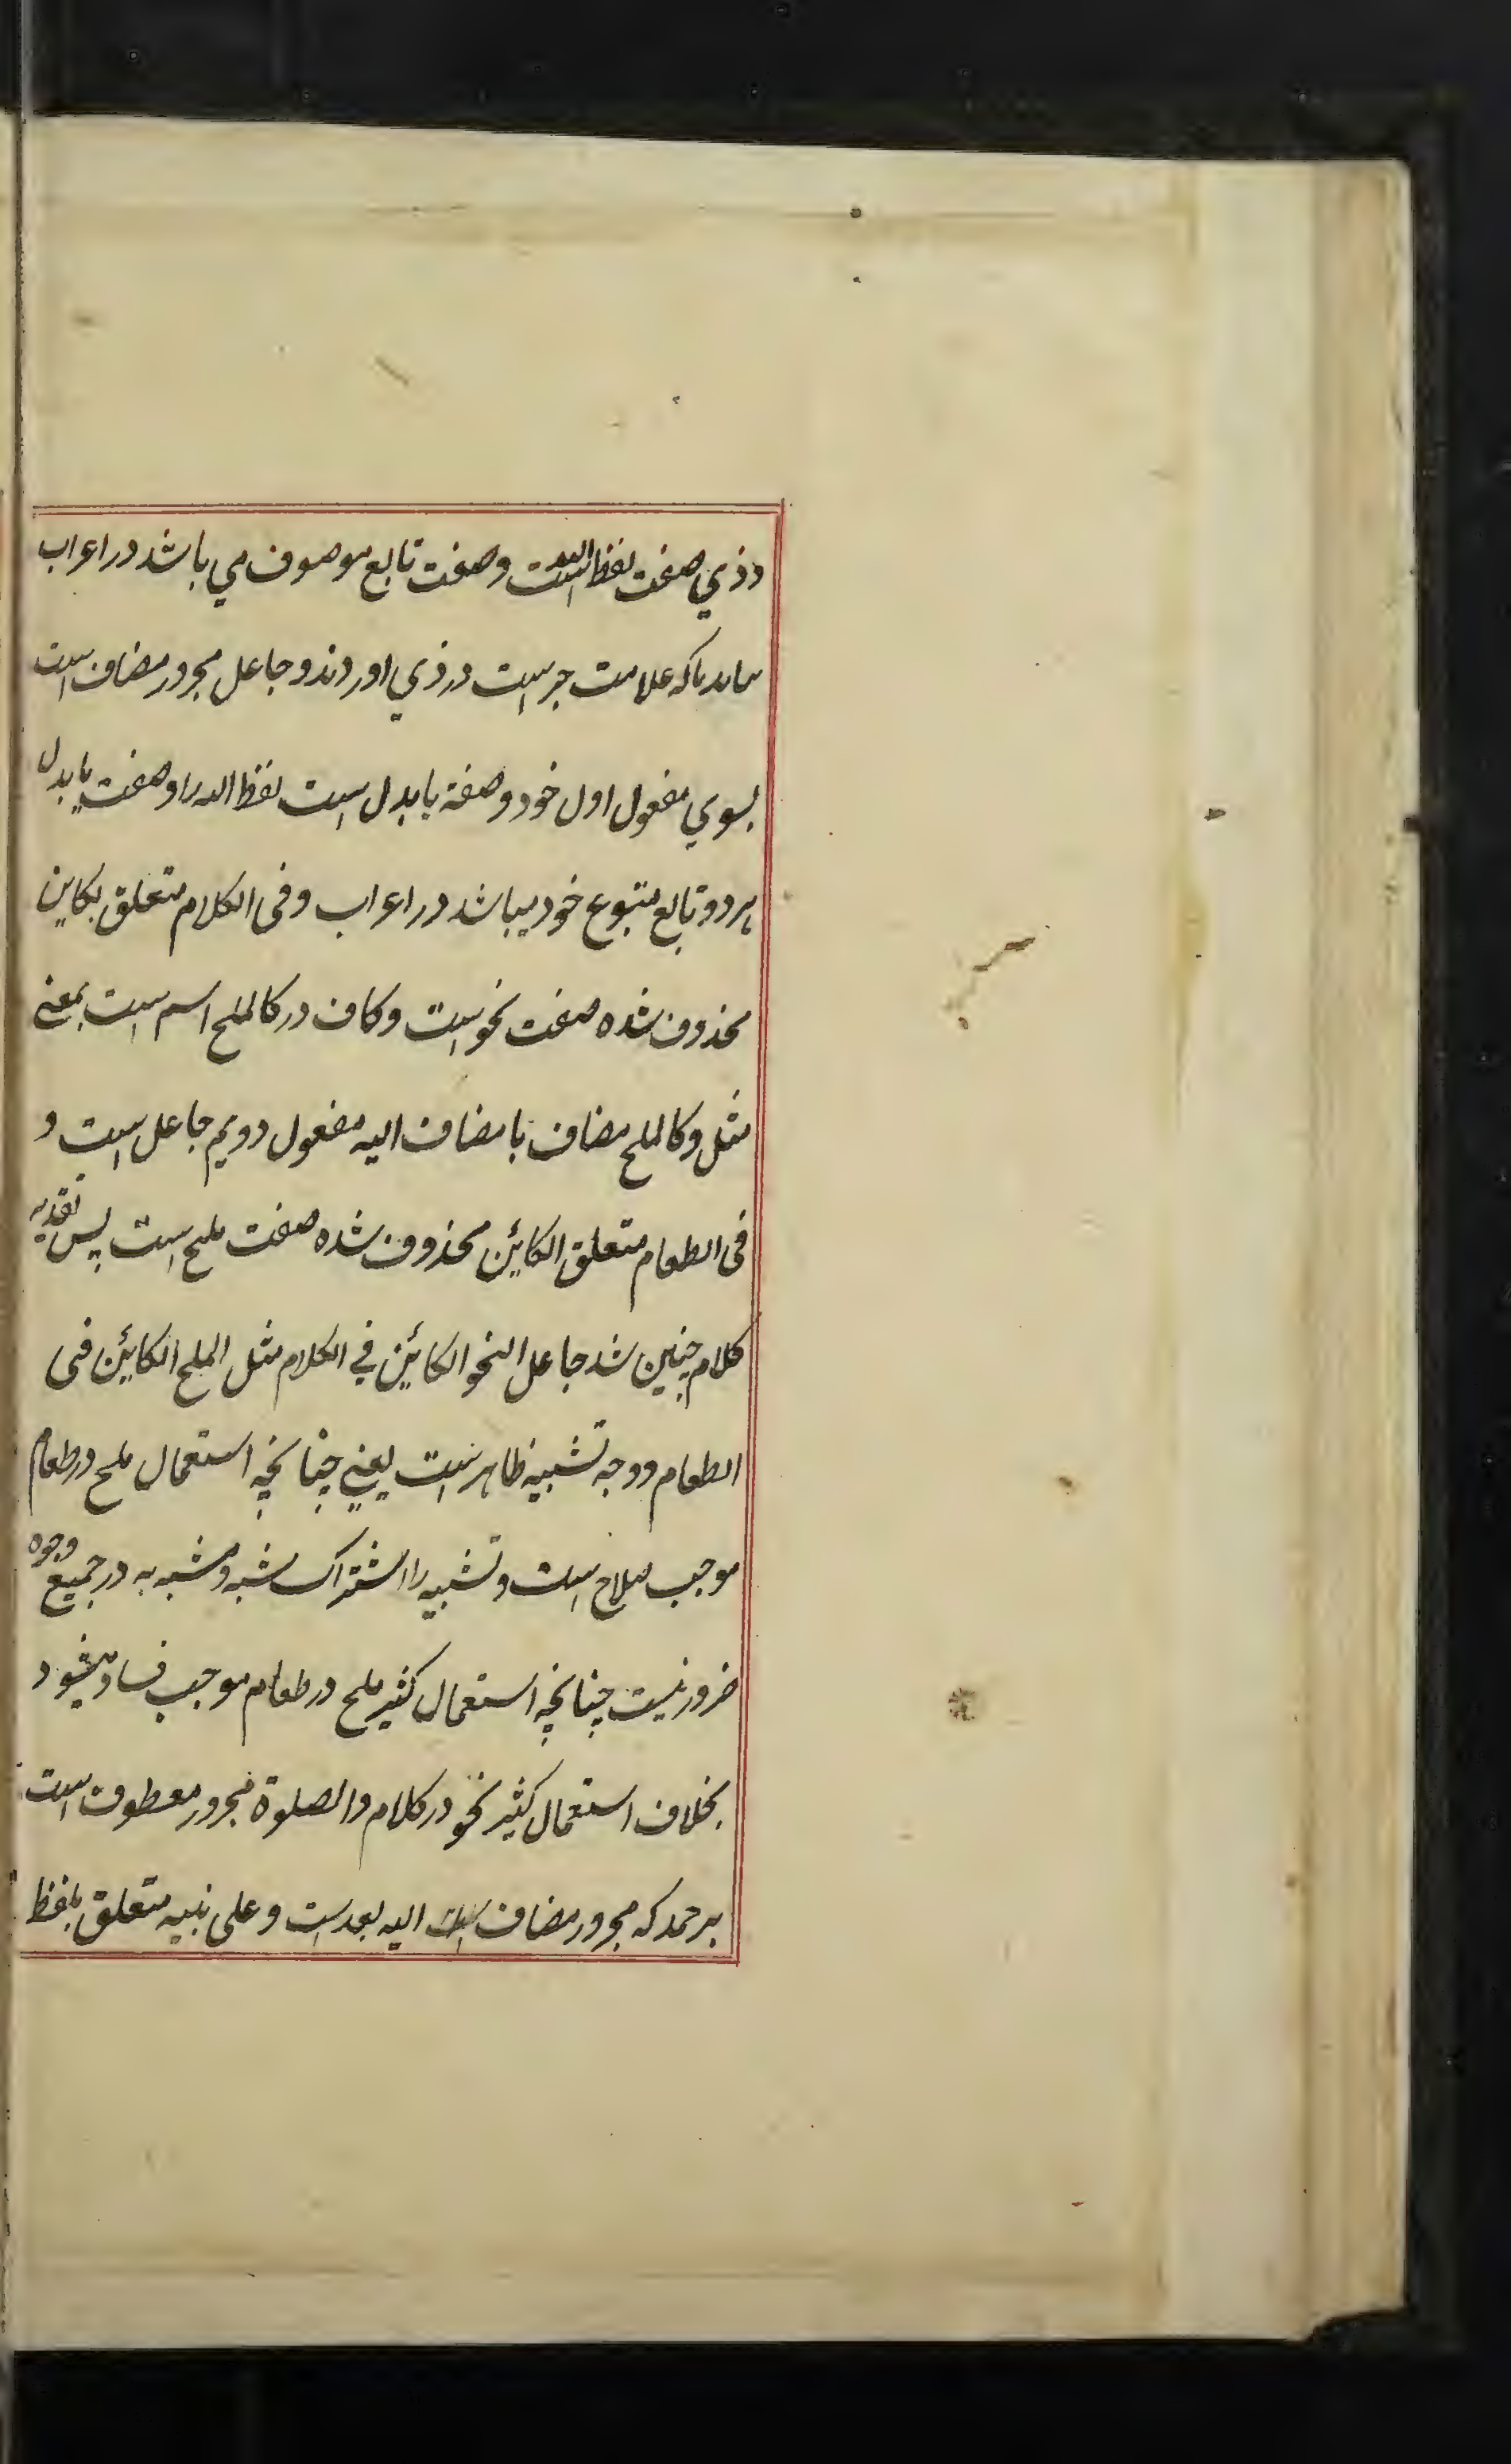 و ذي صفت لفظ الله است و صفت تابع موصوف مي باشد در اعراب
که علامت جر است در ذي اوردند و جاعل مجرور مضاف است
بسوي مفعول اول خود و صفة يا بدل است لفظ الله را و صفت يا بدل
هر دو تابع متبوع خود ميباشد در اعراب و فى الكلام متعلق بكاين
محذوف شده صفت نحو است و كاف در كالملح اسم است بمعنى
مثل و كالملح مضاف با مضاف اليه مفعول دويم جاعل است و
فى الطعام متعلق الكائن محذوف شده صفت ملح است پس تقدير
كلام چنين شد جاعل النحو الكائن في الكلام مثل الملح الكائن فى
الطعام و وجه تشبيه ظاهر است يعني چنانچه استعمال ملح در طعام
موجب صلاح است و تشبيه را اشتراک مشبه و مشبه به در جميع وجوه
ضرور نيست چنانچه استعمال كثير ملح در طعام موجب فساد ميشود
بخلاف استعمال كثير نحو در كلام والصلوة مجرور معطوف است
بر حمد كه مجرور مضاف اليه بعد است و على نبيه متعلق بلفظ